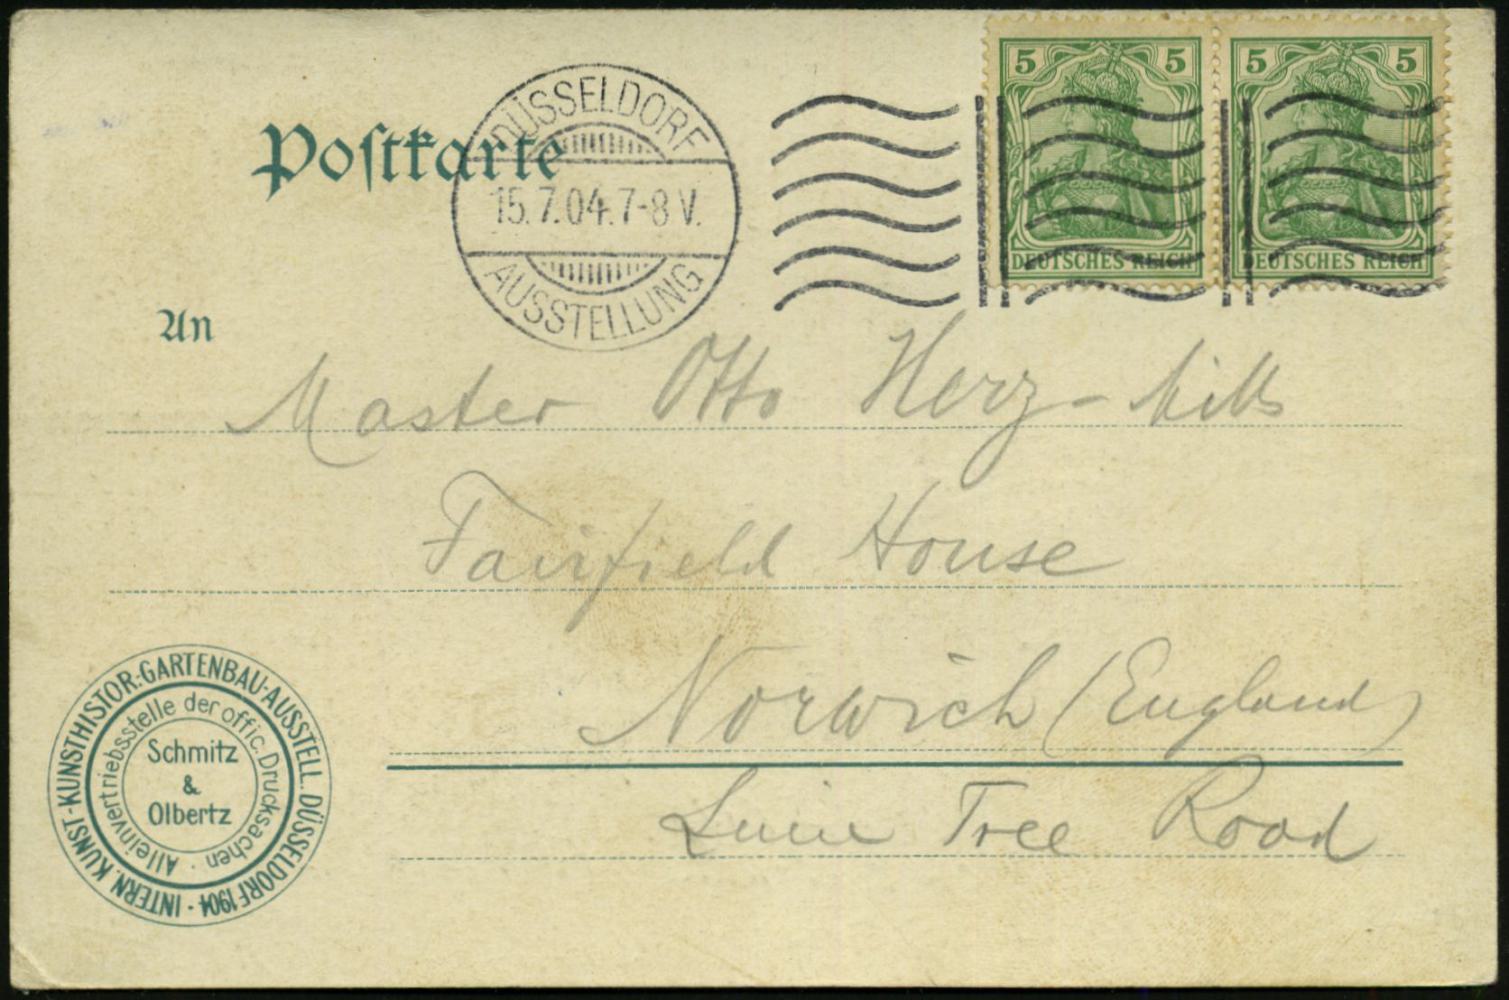 5 5 5 5
DEUTSCHES REICH DEUTSCHES REICH
DÜSSELDORF
15.7.04.7-8 V.
AUSSTELLUNG
Postkarte
An
Master Otto Herz-hills
Fairfield House
Norwich (England)
Lime Tree Road
INTERN. KUNST-KUNSTHISTOR.-GARTENBAU-AUSSTELL. DÜSSELDORF 1904 ·
Alleinvertriebsstelle der offic. Drucksachen ·
Schmitz
&
Olbertz